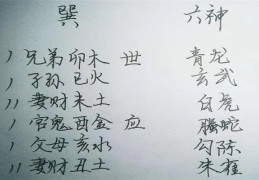 巽 六神
、兄弟卯木 世 青龙
、子孙巳火 玄武
、、妻财未土 白虎
、官鬼酉金 应 螣蛇
、父母亥水 勾陈
、、妻财丑土 朱雀